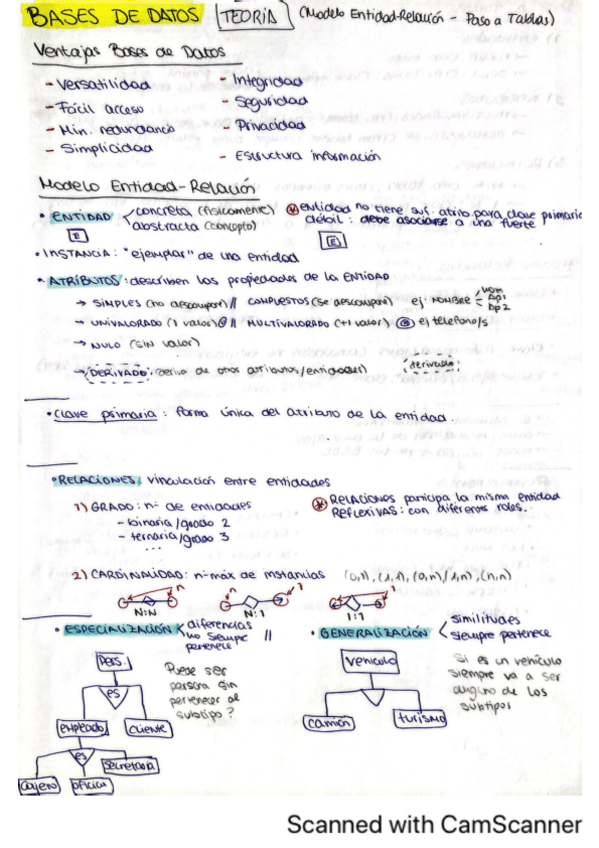 BASES DE DATOS | TEORÍA | (Modelo Entidad-Relación - Paso a Tablas)
Ventajas Bases de Datos
- Versatilidad
- Fácil acceso
- Min. redundancia
- Simplicidad
- Integridad
- Seguridad
- Privacidad
- Estructura información
Modelo Entidad-Relación
• ENTIDAD concreta (físicamente)
abstracta (concepto)
E
* entidad no tiene suf. atrib. para clave primaria
débil: debe asociarse a una fuerte
E
• INSTANCIA: "ejemplar" de una entidad
• ATRIBUTOS: describen las propiedades de la ENTIDAD
→ SIMPLES (no descompon) // COMPUESTOS (se descompon) ej: NOMBRE
Nom
Ap1
Ap2
→ UNIVALORADO (1 valor) // MULTIVALORADO (+1 valor) ej telefono/s
→ NULO (SIN valor)
→ DERIVADO: (deriva de otros atributos/entidades)
derivado
• clave primaria: forma única del atributo de la entidad.
• RELACIONES: vinculación entre entidades
1) GRADO: nº de entidades
- binaria/grado 2
- ternaria/grado 3
...
* RELACIONES participa la misma entidad
REFLEXIVAS: con diferentes roles.
2) CARDINALIDAD: nº máx de instancias (0,1), (1,1), (0,n)/1,n), (n,n)
n
N:N
n
N:1
1
1
1:1
• ESPECIALIZACIÓN diferencias
no siempre
pertenece
//
• GENERALIZACIÓN similitudes
siempre pertenece
Pers.
es
empleado
cliente
es
cajero
oficial
secretaria
Puede ser
persona sin
pertenecer al
subtipo?
Vehículo
camión
turismo
Si es un vehículo
siempre va a ser
alguno de los
subtipos
Scanned with CamScanner